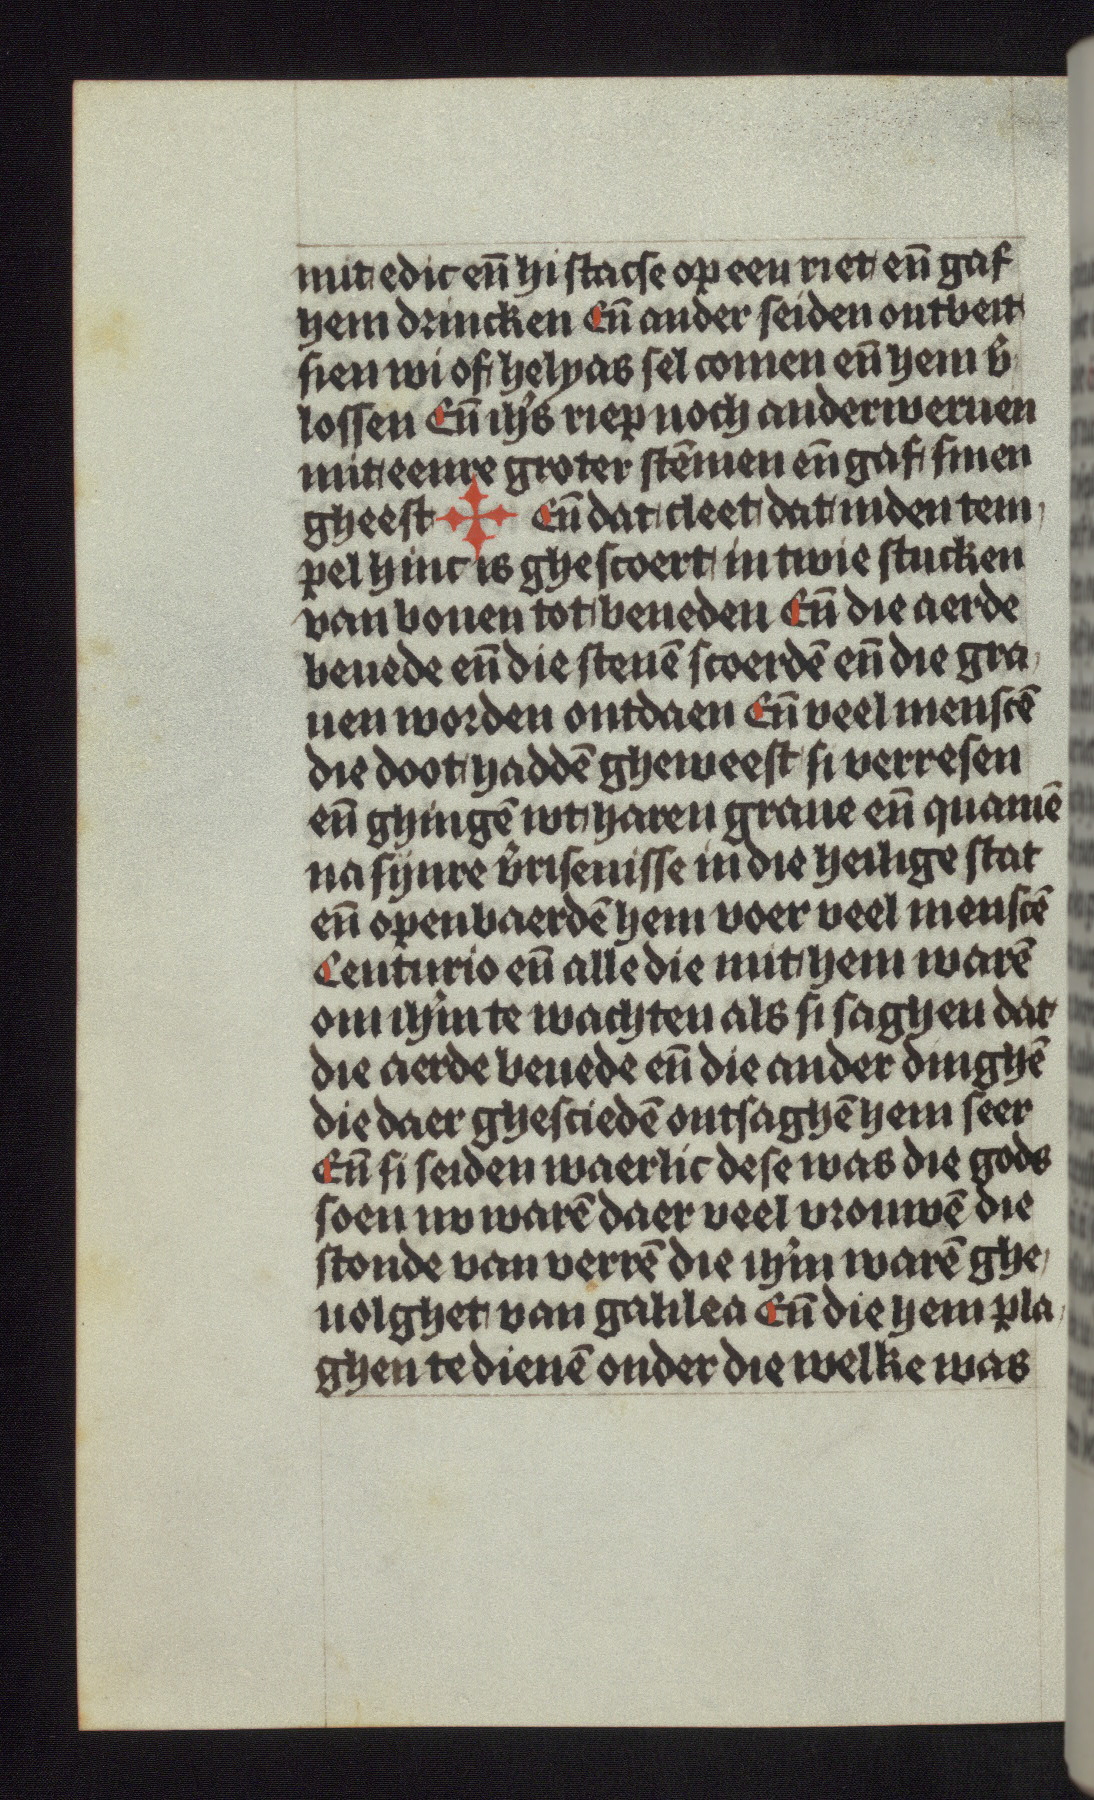 mit edic en̄ hi stacse op een riet en̄ gaf
hem drincken En̄ ander seiden ontbeit
sien wi of helyas sel comen en̄ hem v̉
lossen En̄ ihūs riep noch anderweruen
mit eenre groter stēmen en̄ gaf sinen
gheest ✠ En̄ dat cleet dat inden tem
pel hinc is ghescoert in twie stucken
van bouen tot beneden En̄ die aerde
beuede en̄ die stenē scoerdē en̄ die gra
uen worden ontdaen En̄ veel menscē
die doot haddē gheweest si verresen
en̄ ghingē wt haren graue en̄ quamē
na sijnre v̉risenisse in die heilige stat
en̄ openbaerdē hem voer veel menscē
Centurio en̄ alle die mit hem warē
om ihūm te wachten als si saghen dat
die aerde beuede en̄ die ander dinghē
die daer ghesciedē ontsaghē hem seer
En̄ si seiden waerlic dese was die gods
soen nv warē daer veel vrouwē die
stonde van verrē die ihūm warē ghe
uolghet van galilea En̄ die hem pla
ghen te dienē onder die welke was